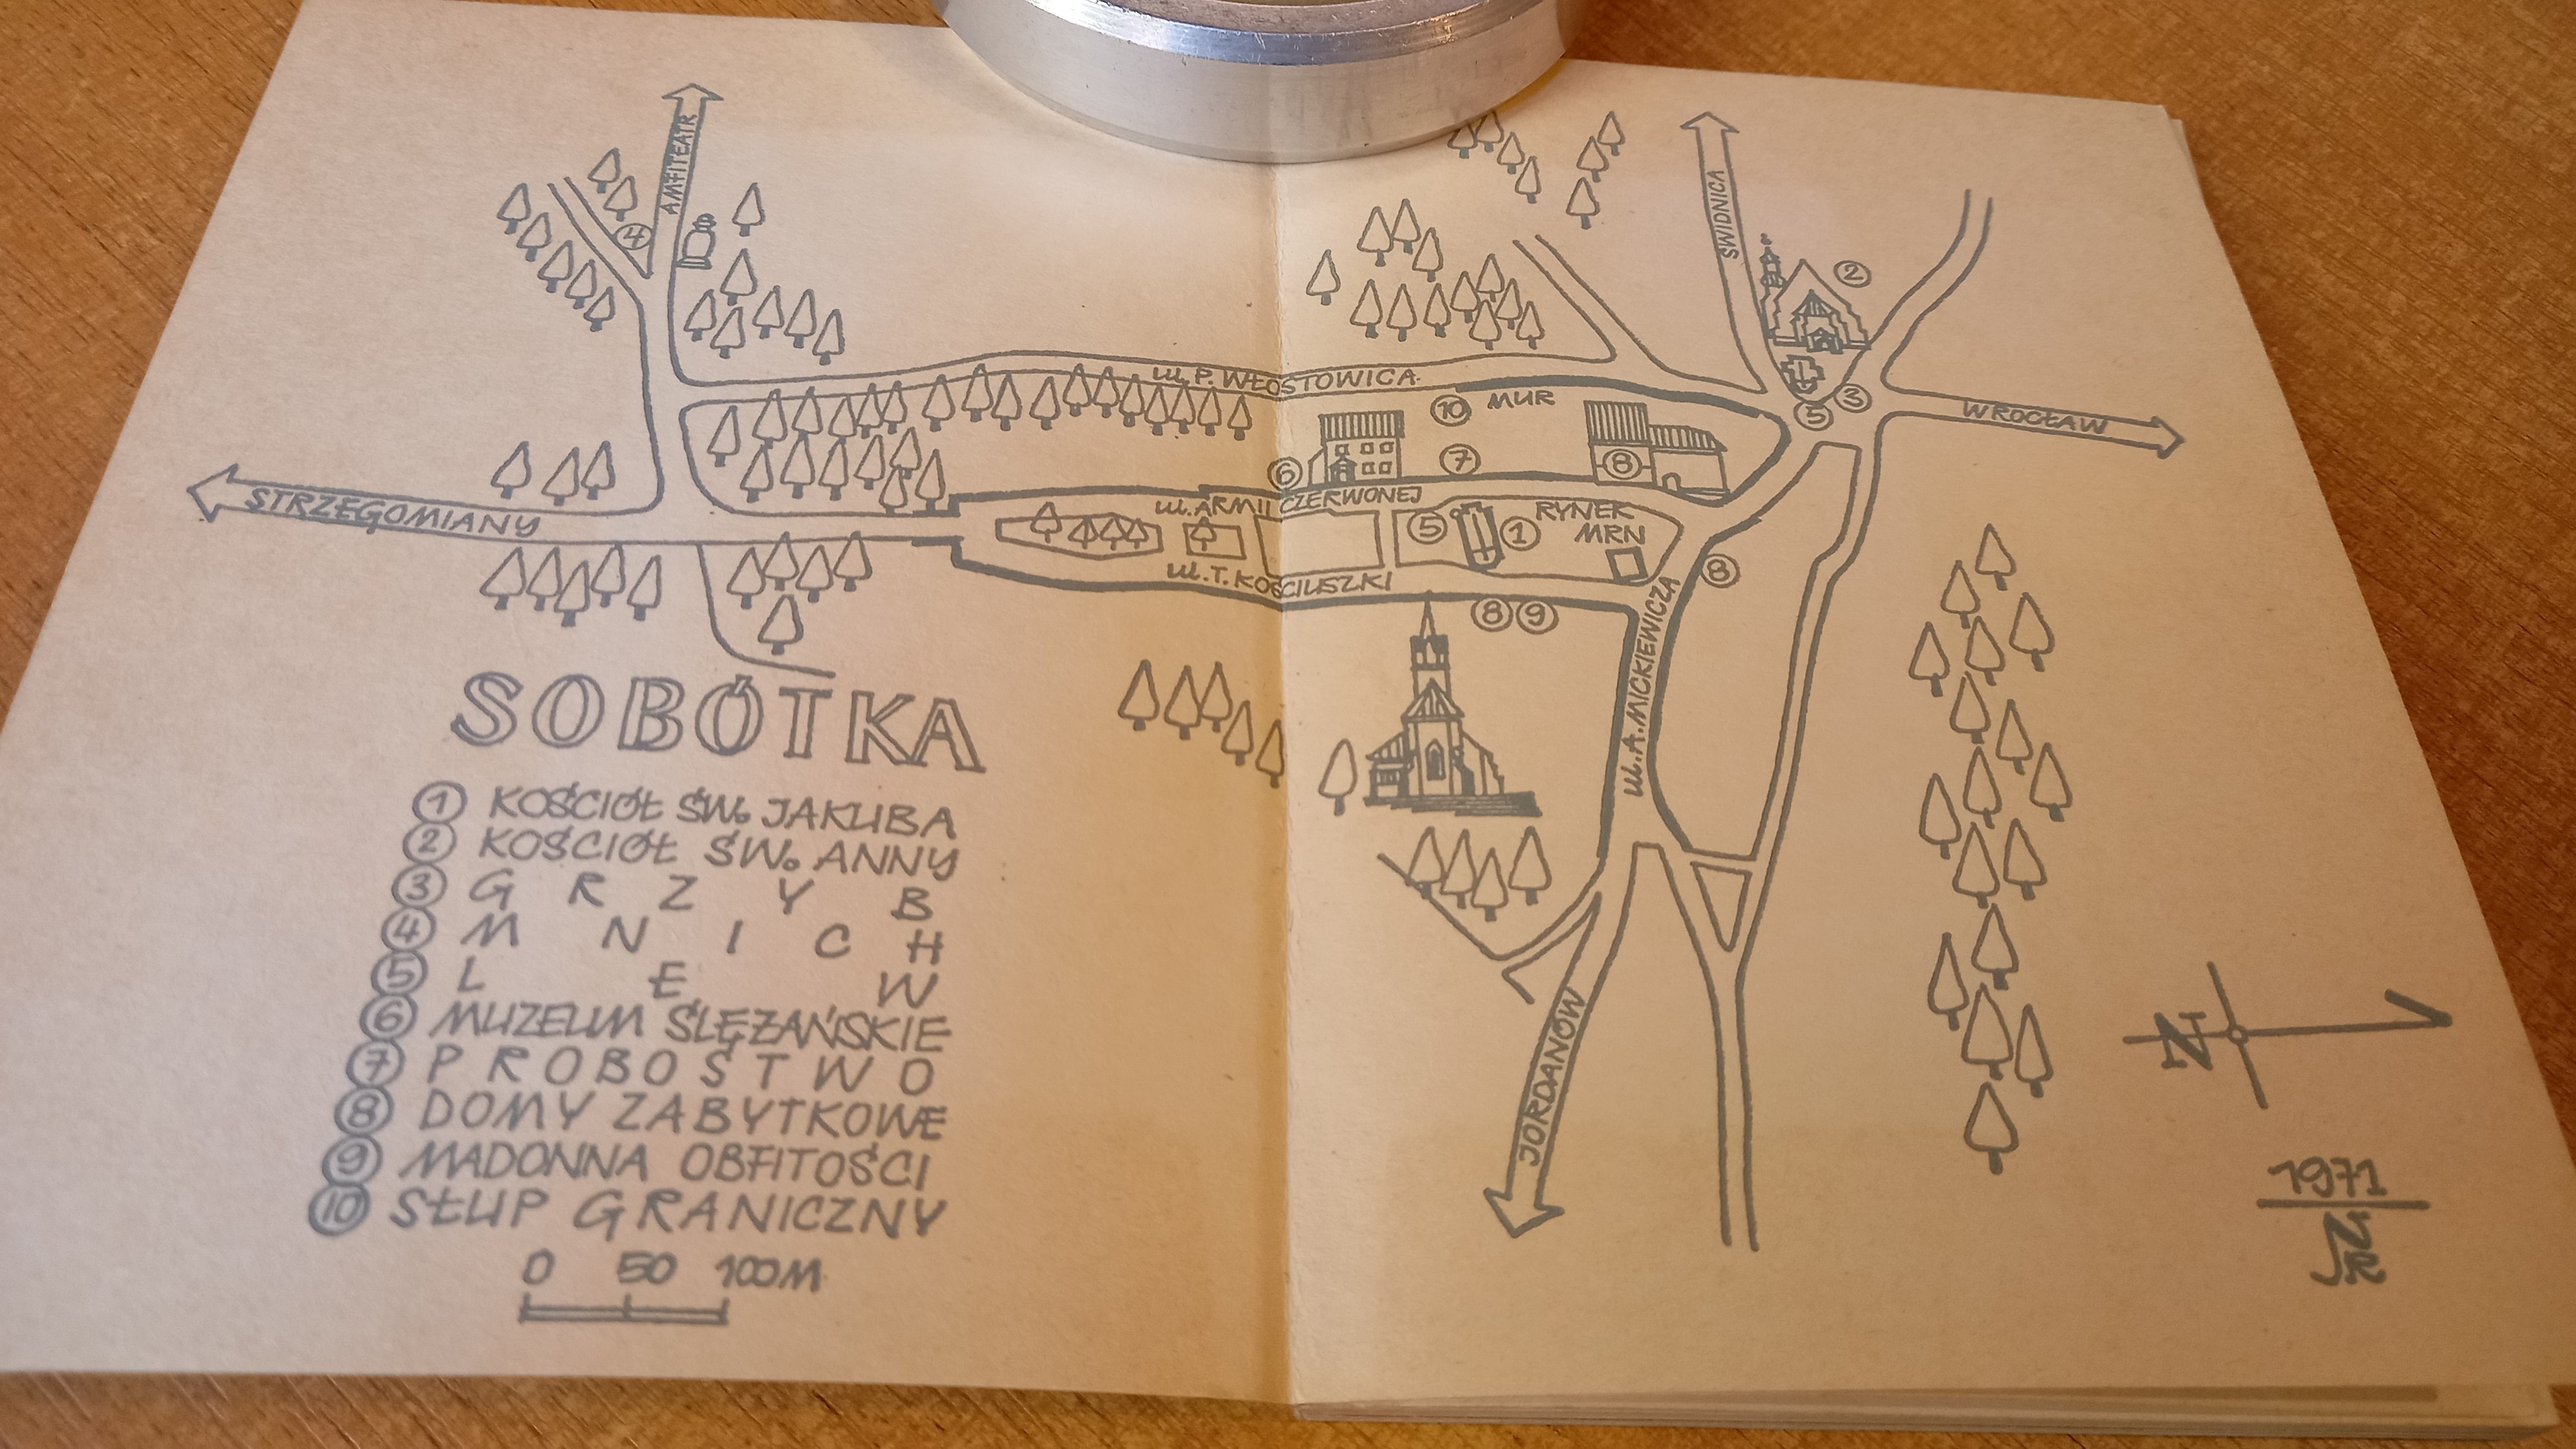 AMFITEATR
4
ŚWIDNICA
2
ul. P. WŁOSTOWICA
10 MUR
3
5
WROCŁAW
6
7
8
STRZEGOMIANY
ul. ARMII CZERWONEJ
5
1
RYNEK
MRN
8
ul. T. KOŚCIUSZKI
8 9
ul. A. MICKIEWICZA
SOBÓTKA
1 KOŚCIÓŁ ŚW. JAKUBA
2 KOŚCIÓŁ ŚW. ANNY
3 GRZYB
4 MNICH
5 LEW
6 MUZEUM ŚLĘŻAŃSKIE
7 PROBOSTWO
8 DOMY ZABYTKOWE
9 MADONNA OBFITOŚCI
10 SŁUP GRANICZNY
0 50 100M
JORDANÓW
N
1971